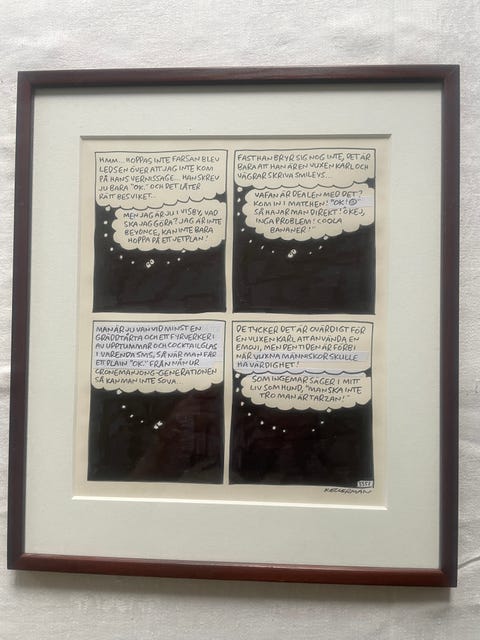 HMM... HOPPAS INTE FARSAN BLEV
LEDSEN ÖVER ATT JAG INTE KOM
PÅ HANS VERNISSAGE... HAN SKREV
JU BARA "OK." OCH DET LÅTER
RÄTT BESVIKET...
MEN JAG ÄR JU I VISBY, VAD
SKA JAG GÖRA? JAG ÄR INTE
BEYONCE, KAN INTE BARA
HOPPA PÅ ETT JETPLAN!
FAST HAN BRYR SIG NOG INTE, DET ÄR
BARA ATT HAN ÄR EN VUXEN KARL OCH
VÄGRAR SKRIVA SMILEYS...
VAFAN ÄR DEALEN MED DET?
KOM IN I MATCHEN! "OK!☺"
SÅ HAJAR MAN DIREKT! OKEJ,
INGA PROBLEM! COOLA
BANANER!"
MAN ÄR JU VAN VID MINST EN
GRÄDDTÅRTA OCH ETT FYRVERKERI
AV UPPTUMMAR OCH COCKTAILGLAS
I VARENDA SMS, SÅ NÄR MAN FÅR
ETT PLAIN "OK." FRÅN NÅN UR
CRONEMANJONG-GENERATIONEN
SÅ KAN MAN INTE SOVA...
DE TYCKER DET ÄR OVÄRDIGT FÖR
EN VUXEN KARL ATT ANVÄNDA EN
EMOJI, MEN DEN TIDEN ÄR FÖRBI
NÄR VUXNA MÄNNISKOR SKULLE
HA VÄRDIGHET!
SOM INGEMAR SÄGER I MITT
LIV SOM HUND, "MAN SKA INTE
TRO MAN ÄR TARZAN!"
KELLERMAN